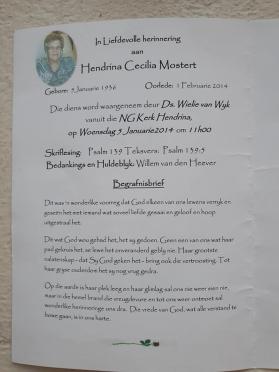 In Liefdevolle herinnering
aan
Hendrina Cecilia Mostert
Gebore: 5 Januarie 1936 Oorlede: 1 Februarie 2014
Die diens word waargeneem deur Ds. Wielie van Wyk
vanuit die NG Kerk Hendrina,
op Woensdag 5 Januarie2014 om 11h00
Skriflesing: Psalm 139 Teksvers: Psalm 139:5
Bedankings en Huldeblyk: Willem van den Heever
Begrafnisbrief
Dit was 'n wonderlike voorreg dat God elkeen van ons lewens verryk en
geseën het met iemand wat soveel liefde gesaai en geloof en hoop
uitgestraal het.
Dit wat God wou gehad het, het sy gedoen. Geen een van ons wat haar
pad gekruis het, se lewe het onveranderd gebly nie. Haar grootste
nalatenskap - dat Sy God geken het - bring ook die vertroosting. Tot
haar gryse ouderdom het sy nog vrug gedra.
Op die aarde is haar plek leeg en haar glimlag sal ons nie weer sien nie,
maar in die hemel brand die vreugdevure en tot ons weer ontmoet sal
wonderlike herinneringe ons dra. Die vrede van God, wat alle verstand te
bowe gaan, is in ons harte.